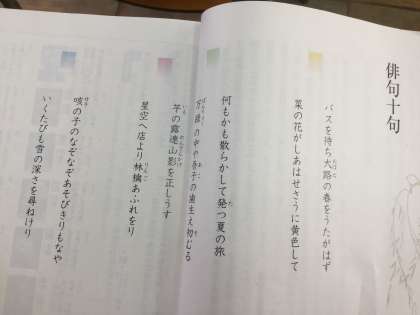 俳句十句
バスを待ち大路の春をうたがはず
菜の花がしあはせさうに黄色して
何もかも散らかして発つ夏の旅
万緑の中や吾子の歯生え初むる
芋の露連山影を正しうす
星空へ店より林檎あふれをり
咳の子のなぞなぞあそびきりもなや
いくたびも雪の深さを尋ねけり